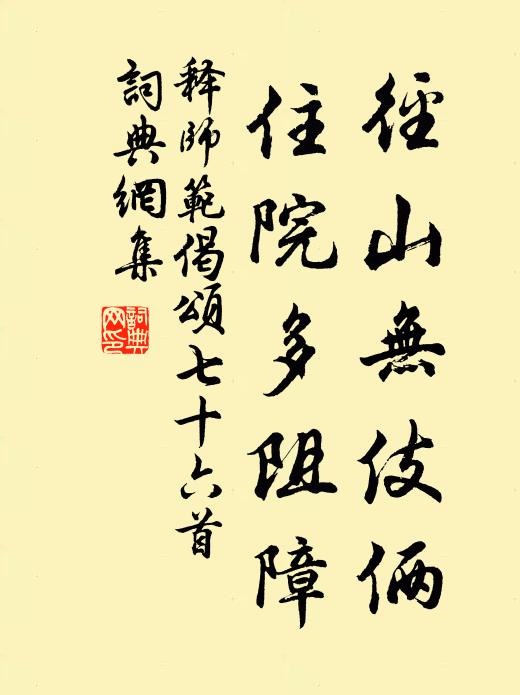 徑山無伎倆
住院多阻障
释師範偈頌七十六首
詞典網集
詞典网印